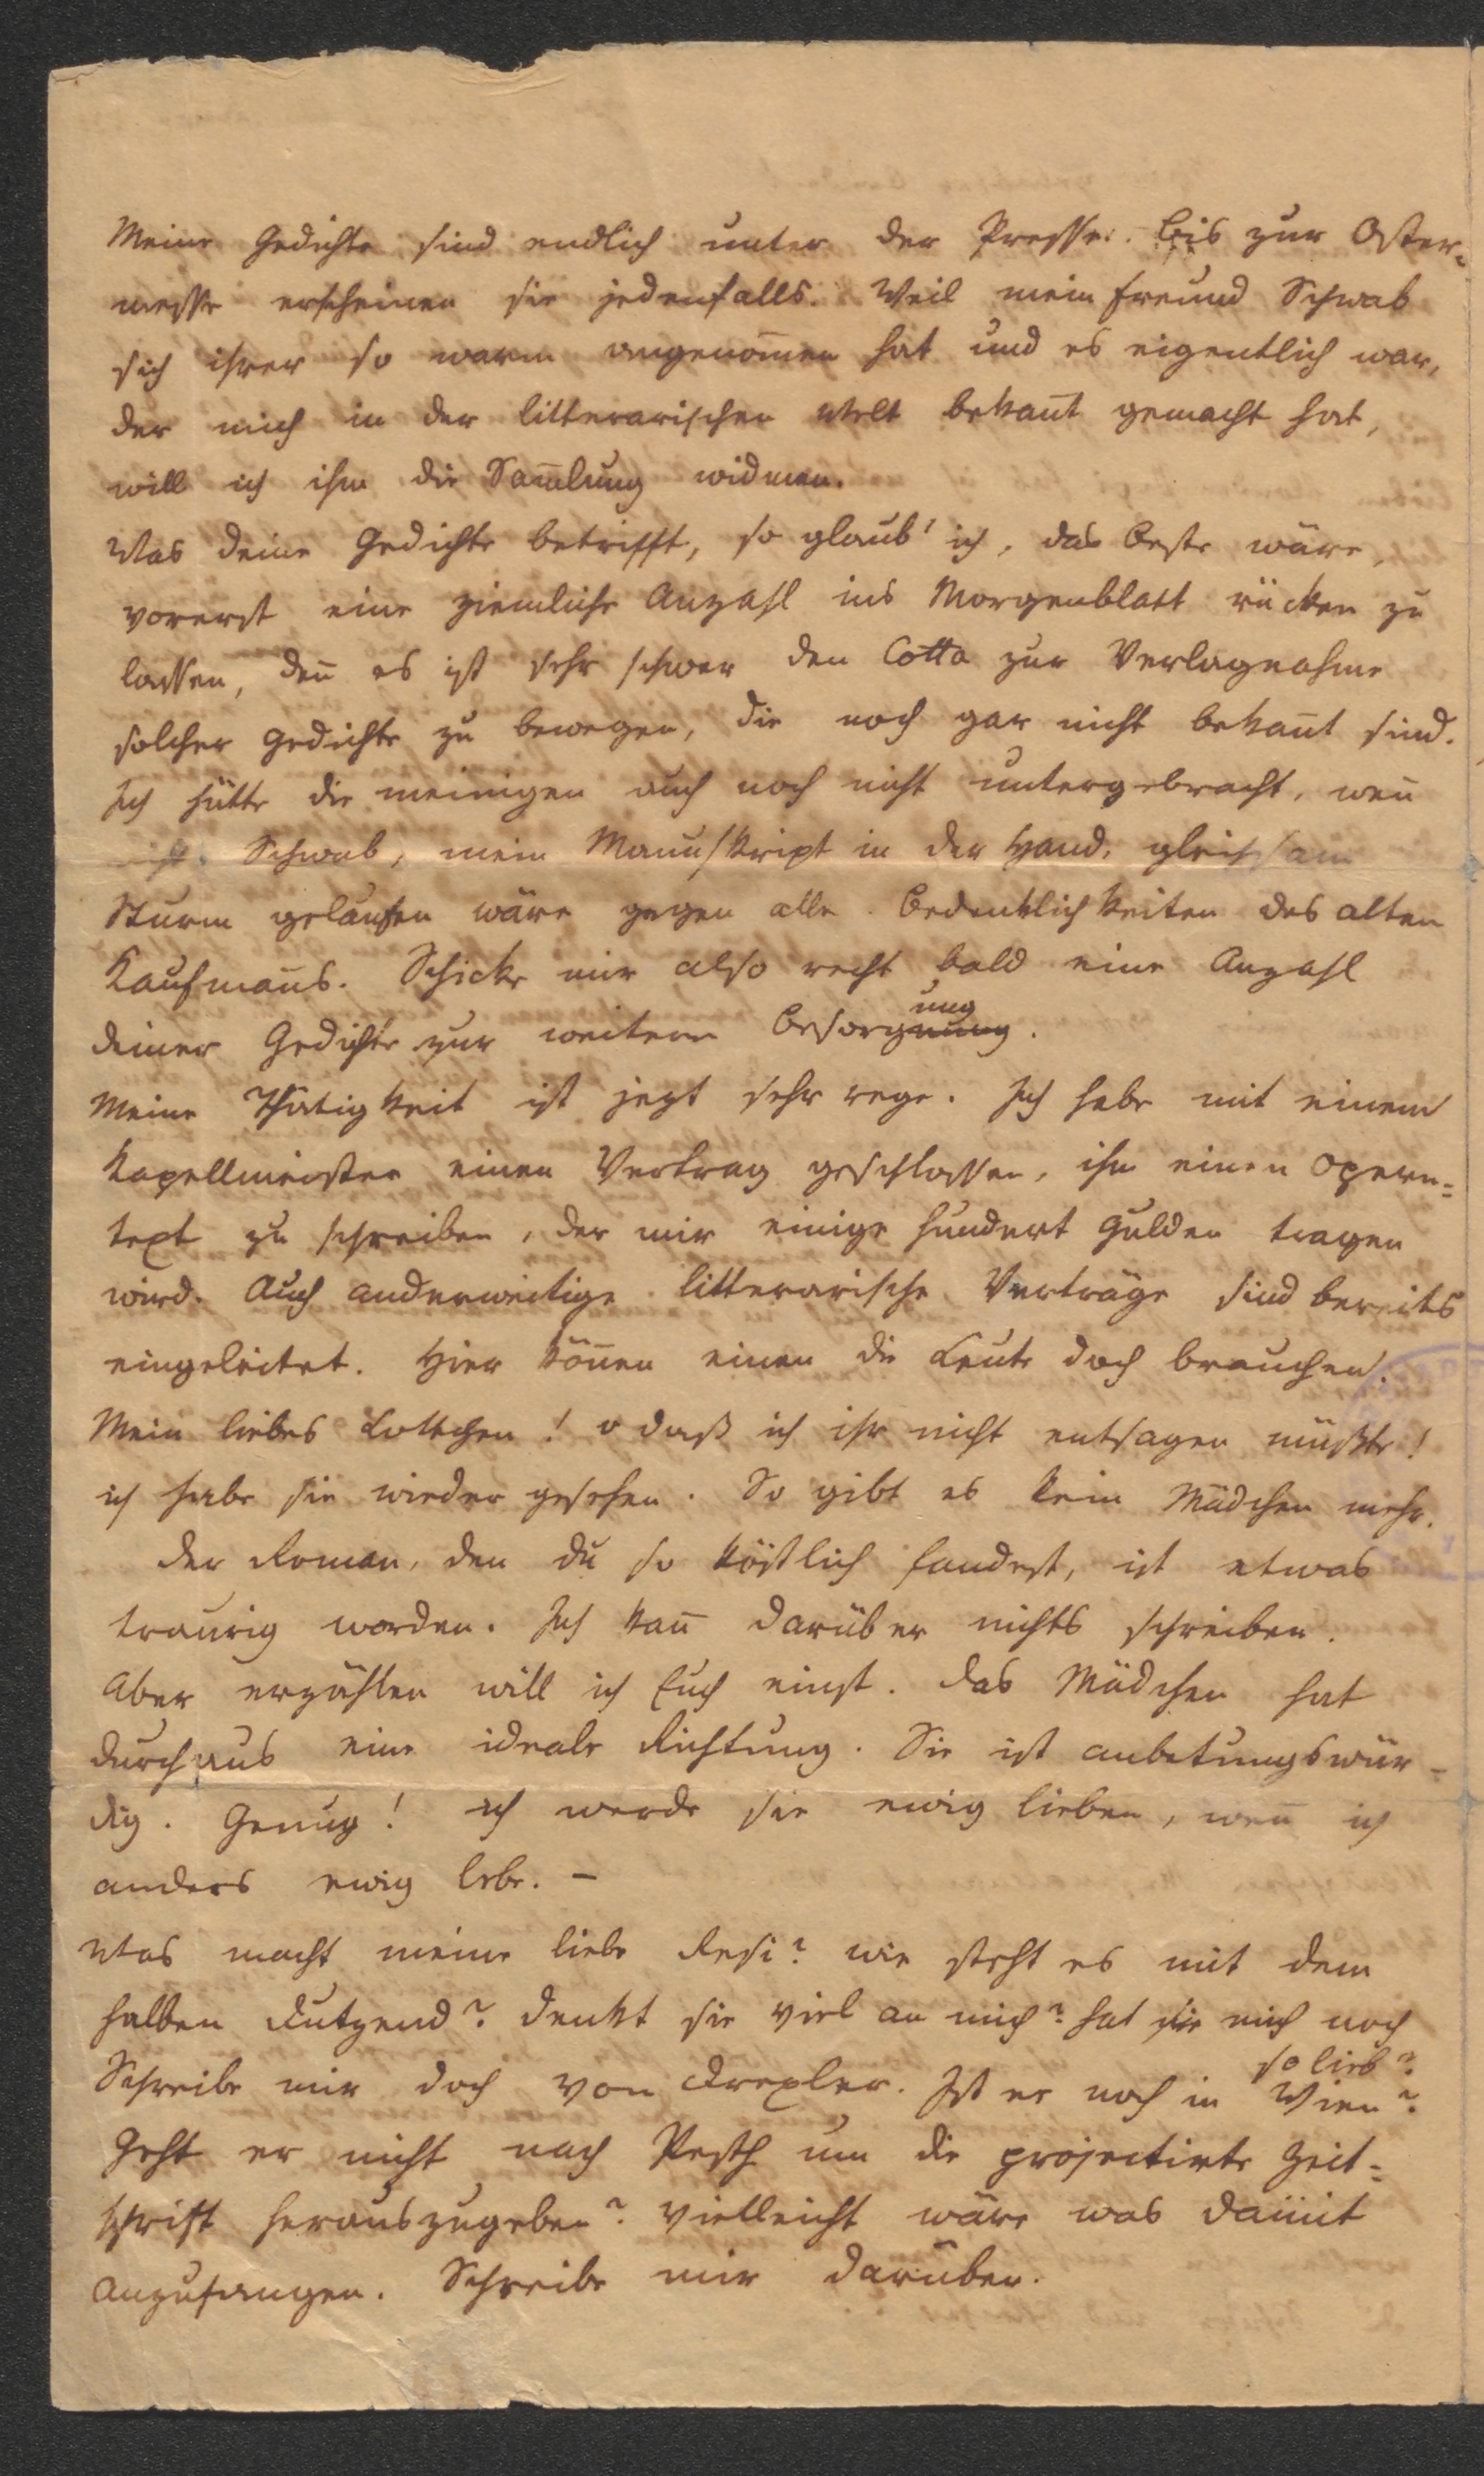 Meine Gedichte sind endlich unter der Presse. Bis zur Oster-
messe erscheinen sie jedenfalls. Weil mein Freund Schwab
sich ihrer so warm angenom̄en hat und es eigentlich war,
der mich in der litterarischen Welt bekan̄t gemacht hat,
will ich ihm die Sam̄lung widmen.
Was deine Gedichte betrifft, so glaub' ich, das Beste wäre,
vorerst eine ziemliche Anzahl ins Morgenblatt rücken zu
lassen, den̄ es ist sehr schwer den Cotta zur Verlagnahme
solcher Gedichte zu bewegen, die noch gar nicht bekan̄t sind.
Ich hätte die meinigen auch noch nicht untergebracht, wen̄
nicht Schwab, mein Manuskript in der Hand, gleichsam
Sturm gelaufen wäre gegen alle Bedenklichkeiten des alten
Kaufman̄s. Schicke mir also recht bald eine Anzahl
deiner Gedichte zur weitern Besorgnung.
ung
Meine Thätigkeit ist jezt sehr rege. Ich habe mit einem
Kapellmeister einen Vertrag geschlossen, ihm einen Opern-
text zu schreiben, der mir einige hundert Gulden tragen
wird. Auch anderweitige litterarische Verträge sind bereits
eingeleitet. Hier kön̄en einen die Leute doch brauchen.
Mein liebes Lottchen! o daß ich ihr nicht entsagen müßte!
ich habe sie wieder gesehen. So gibt es kein Mädchen mehr.
Der Roman, den du so köstlich fandest, ist etwas
traurig worden. Ich kan̄ darüber nichts schreiben.
Aber erzählen will ich Euch einst. Das Mädchen hat
durchaus eine ideale Richtung. Sie ist anbetungswür-
dig. Genug! ich werde sie ewig lieben, wen̄ ich
anders ewig lebe. –
Was macht meine liebe Resi? wie steht es mit dem
halben Dutzend? denkt sie viel an mich? hat sie mich noch
so lieb?
Schreibe mir doch von Drexler. Ist er noch in Wien?
Geht er nicht nach Pesth um die projectirte Zeit-
schrift herauszugeben? vielleicht wäre was damit
anzufangen. Schreibe mir darüber.